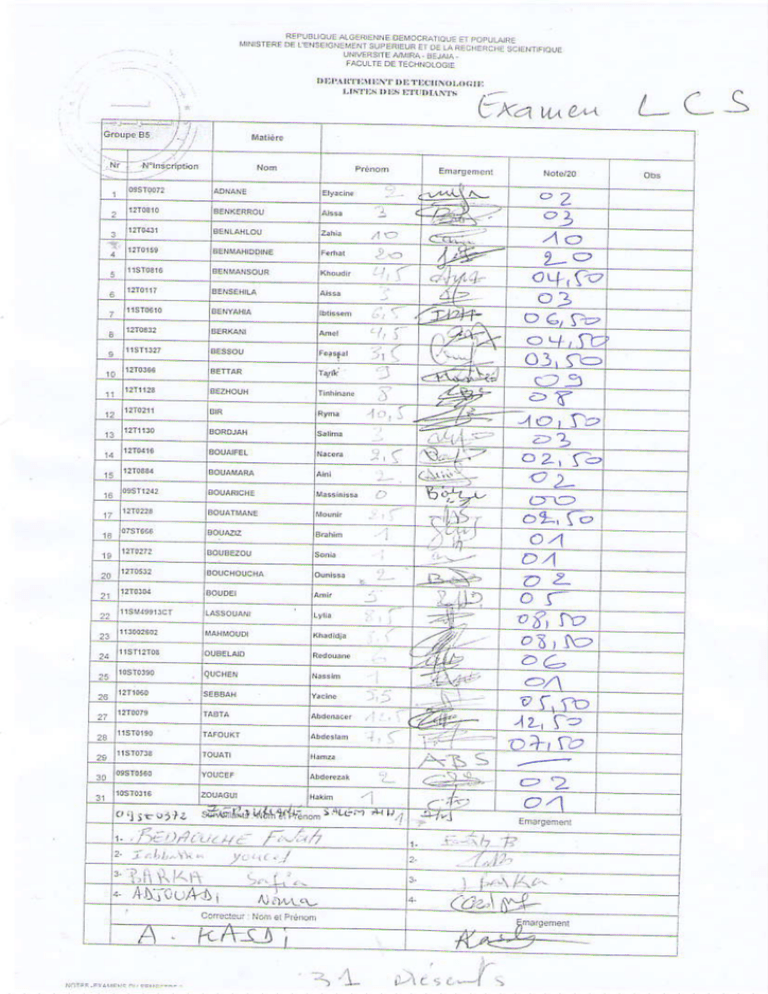 REPUBLIQUE ALGERIENNE DEMOCRATIQUE ET POPULAIRE
MINISTERE DE L'ENSEIGNEMENT SUPERIEUR ET DE LA RECHERCHE SCIENTIFIQUE
UNIVERSITE A/MIRA - BEJAIA -
FACULTE DE TECHNOLOGIE
DEPARTEMENT DE TECHNOLOGIE
LISTES DES ETUDIANTS
Examen LCS
Groupe B5 Matière
Nr N°Inscription Nom Prénom Emargement Note/20 Obs
1 09ST0072 ADNANE Elyacine 2 02
2 12T0810 BENKERROU Aissa 3 03
3 12T0431 BENLAHLOU Zahia 10 10
4 12T0159 BENMAHIDDINE Ferhat 20 20
5 11ST0816 BENMANSOUR Khoudir 4,5 04,50
6 12T0117 BENSEHILA Aissa 3 03
7 11ST0610 BENYAHIA Ibtissem 6,5 06,50
8 12T0832 BERKANI Amel 4,5 04,50
9 11ST1327 BESSOU 3,5 03,50
10 12T0366 BETTAR Tarik 9 09
11 12T1128 BEZHOUH Tinhinane 8 08
12 12T0211 BIR Ryma 10,5 10,50
13 12T1130 BORDJAH Salima 3 03
14 12T0416 BOUAIFEL Nacera 2,5 02,50
15 12T0884 BOUAMARA Aini 2 02
16 09ST1242 BOUARICHE Massinissa 0 00
17 12T0228 BOUATMANE Mounir 2,5 02,50
18 07ST666 BOUAZIZ Brahim 1 01
19 12T0272 BOUBEZOU Sonia 1 01
20 12T0532 BOUCHOUCHA Ounissa 2 02
21 12T0304 BOUDEI Amir 5 05
22 11SM49913CT LASSOUANI Lylia 8,5 08,50
23 113002602 MAHMOUDI Khadidja 8,5 08,50
24 11ST12T08 OUBELAID Redouane 6 06
25 10ST0390 QUCHEN Nassim 1 01
26 12T1060 SEBBAH Yacine 5,5 05,50
27 12T0079 TABTA Abdenacer 12,5 12,50
28 11ST0190 TAFOUKT Abdeslam 7,5 07,50
29 11ST0738 TOUATI Hamza ABS
30 09ST0560 YOUCEF Abderezak 2 02
31 10ST0316 ZOUAGUI Hakim 1 01
Nom et Prénom 1 Emargement
1- BEDAOUCHE Fatah 1-
2- youcef 2-
3- BARKA Safia 3- barka
4- ADJOUADI Nora 4-
Correcteur : Nom et Prénom Emargement
A. KASDI
31 présents